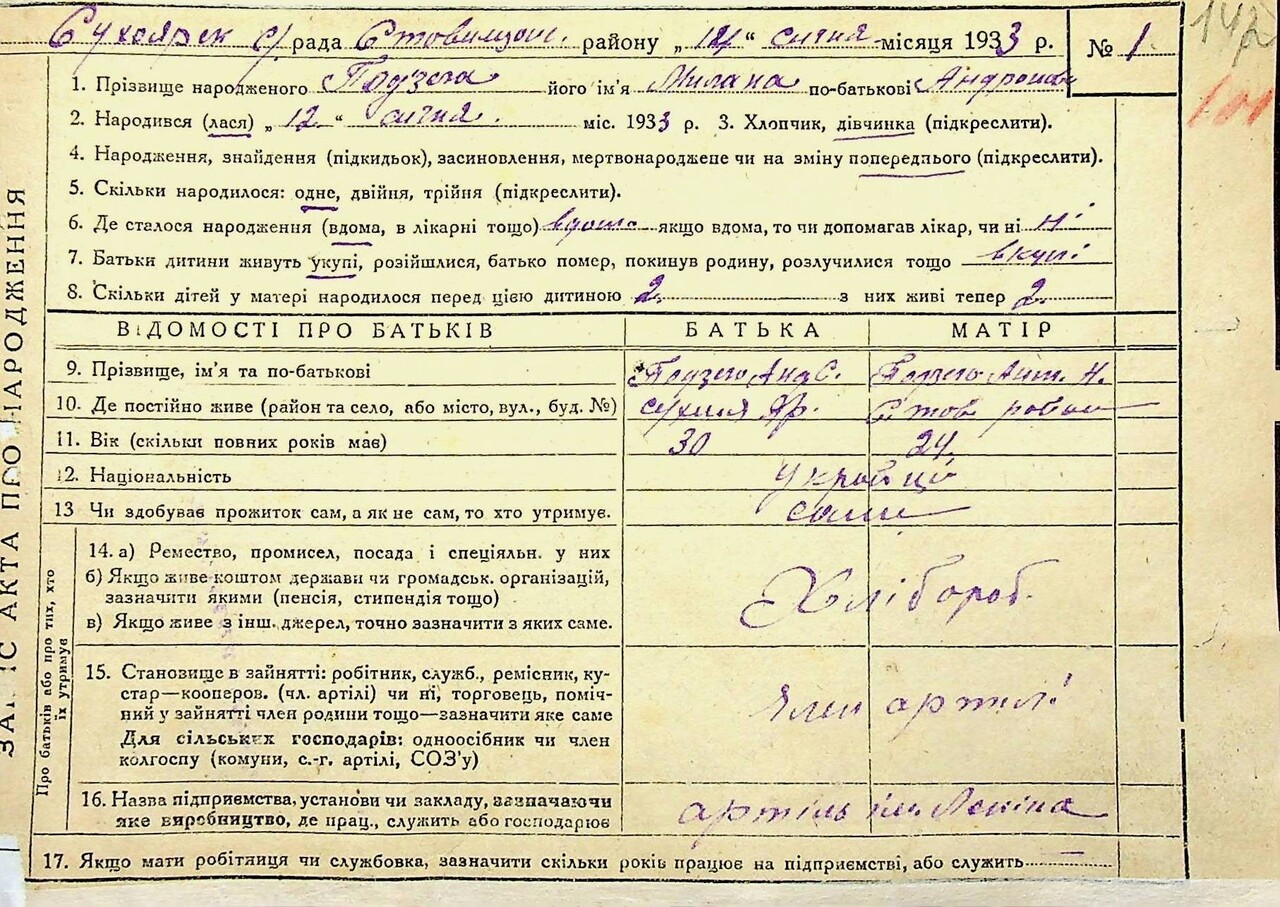 Сухоярск с/рада Стовищан. району „14" січня місяця 1933 р. № 1.
142
101
1. Прізвище народженого Подзега його ім'я Милана по-батькові
2. Народився (лася) „12" січня. міс. 1933 р. 3. Хлопчик, дівчинка (підкреслити).
4. Народження, знайдення (підкидьок), засиновлення, мертвонароджене чи на зміну попереднього (підкреслити).
5. Скільки народилося: одне, двійня, трійня (підкреслити).
6. Де сталося народження (вдома, в лікарні тощо) вдома якщо вдома, то чи допомагав лікар, чи ні ні
7. Батьки дитини живуть укупі, розійшлися, батько помер, покинув родину, розлучилися тощо вкупі
8. Скільки дітей у матері народилося перед цією дитиною 2. з них живі тепер 2.
ВІДОМОСТІ ПРО БАТЬКІВ БАТЬКА МАТІР
9. Прізвище, ім'я та по-батькові Подзего Анд С. Подзего Ант. Н.
10. Де постійно живе (район та село, або місто, вул., буд. №) сухия Яр. Стов район
11. Вік (скільки повних років має) 30 24.
12. Національність українці
13 Чи здобуває прожиток сам, а як не сам, то хто утримує. сами
14. а) Ремество, промисел, посада і спеціяльн. у них
б) Якщо живе коштом держави чи громадськ. організацій,
зазначити якими (пенсія, стипендія тощо) Хлібороб.
в) Якщо живе з інш. джерел, точно зазначити з яких саме.
15. Становище в зайнятті: робітник, служб., ремісник, ку-
стар—кооперов. (чл. артілі) чи ні, торговець, поміч-
ний у зайнятті член родини тощо—зазначити яке саме член артілі
Для сільських господарів: одноосібник чи член
колгоспу (комуни, с.-г. артілі, СОЗ'у)
16. Назва підприємства, установи чи закладу, зазначаючи артіль ім. Леніна
яке виробництво, де прац., служить або господарює
17. Якщо мати робітниця чи службовка, зазначити скільки років працює на підприємстві, або служить —
ЗАПИС АКТА ПРО НАРОДЖЕННЯ
Про батьків або про тих, хто
їх утримує